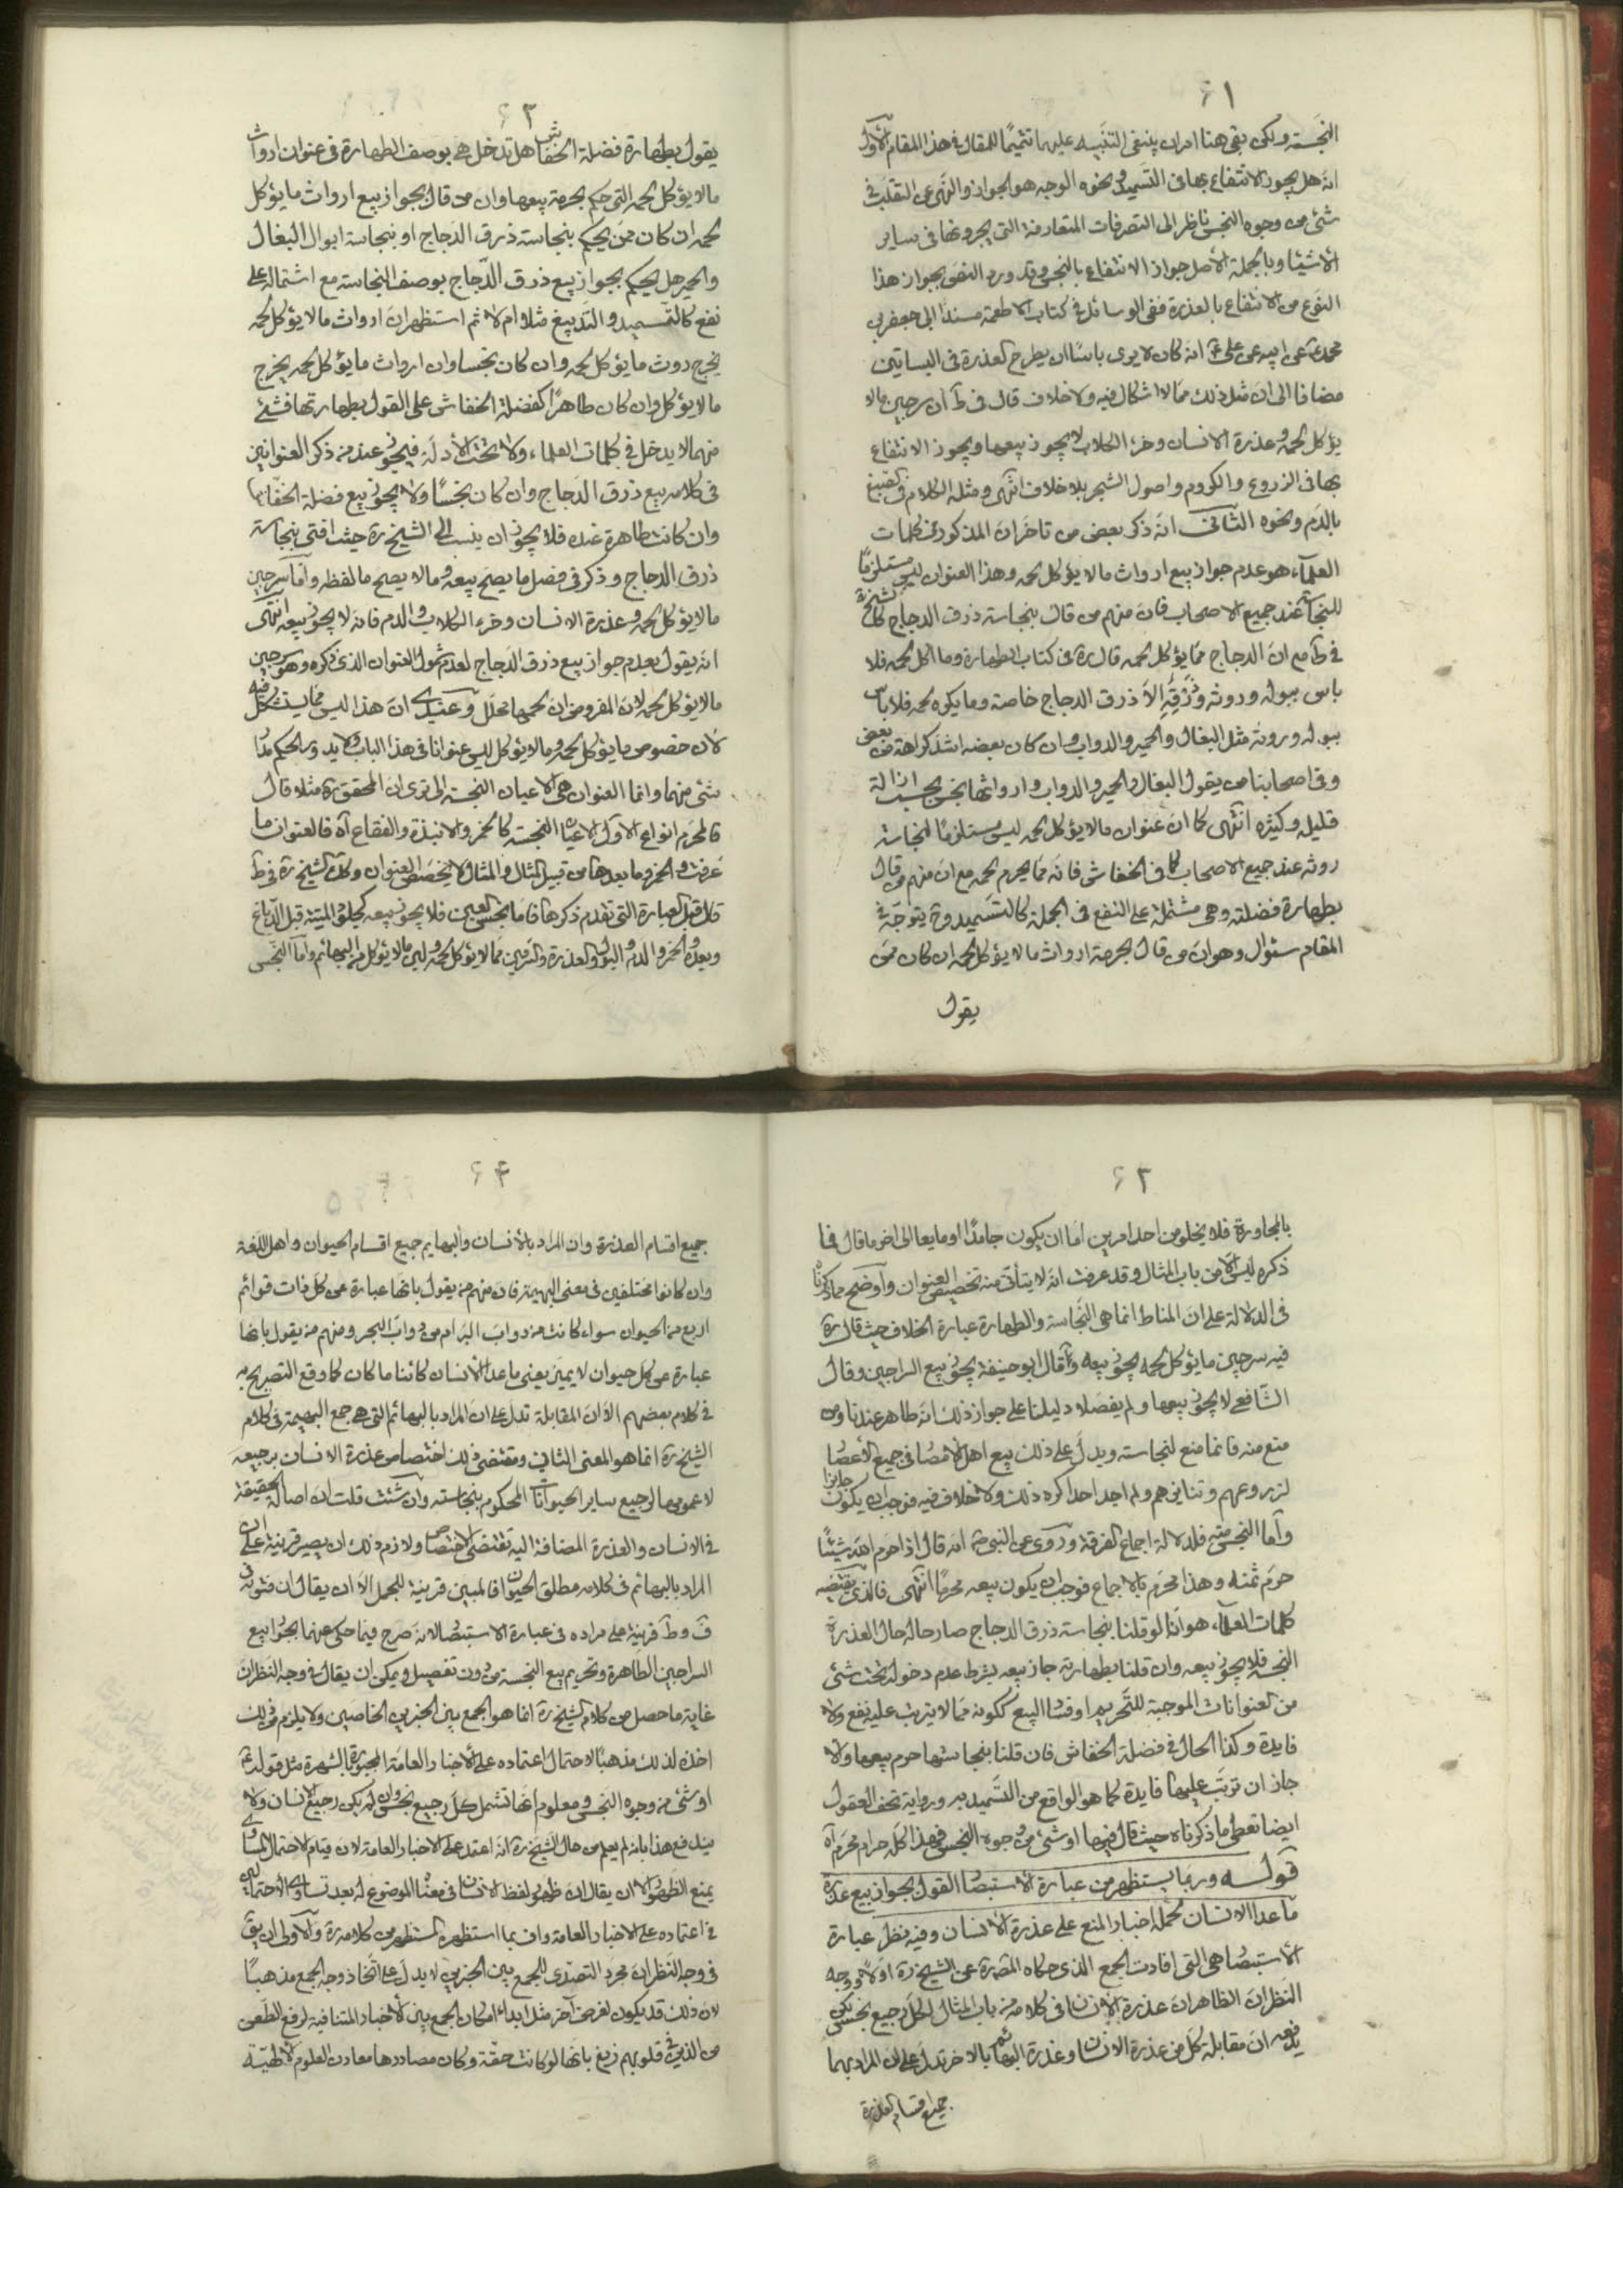 ٦١
النجسة ولكن بقى هنا امران ينبغى التنبيه عليهما تتميمًا للمقال فى هذا المقام الأول
انه هل يجوز الانتفاع بها فى التسميد ونحوه الوجه هو الجواز والنهى عن التقلب فى
شئ من وجوه النجس ناظر الى التصرفات المتعارفة التى يجرونها فى ساير
الأشيا وبالجملة الأصل جواز الانتفاع بالنجس وقد ورد النص بجواز هذا
النوع من الانتفاع بالعذرة ففى الوسائل فى كتاب الاطعمة مسندًا الى جعفر بن
محمد عن ابيه عن على ع انه كان لا يرى باسًا ان يطرح العذرة فى البساتين
مضافا الى ان مثل ذلك مما لا اشكال فيه ولا خلاف قال فى ط ان سرجين مالا
يؤكل لحمه وعذرة الانسان وخرء الكلاب لا يجوز بيعها ويجوز الانتفاع
بها فى الزروع والكروم واصول الشجر بلا خلاف انتهى ومثله الكلام فى الصبغ
بالدم ونحوه الثانى انه ذكر بعض من تاخر ان المذكور فى كلمات
العلماء هو عدم جواز بيع ارواث مالا يؤكل لحمه وهذا العنوان ليس مستلزمًا
للنجاسة عند جميع الاصحاب فان منهم من قال بنجاسة ذرق الدجاج كالشيخ ره
فى ط مع ان الدجاج مما يؤكل لحمه قال ره فى كتاب الطهارة وما اكل لحمه فلا
باس ببوله وروثه وذرقه الا ذرق الدجاج خاصة وما يكره لحمه فلا باس
ببوله وروثه مثل البغال والحمير والدواب وان كان بعضه اشد كراهة من بعض
وفى اصحابنا من يقول البغال والحمير والدواب وارواثها نجس يجب ازالة
قليله وكثيره انتهى كما ان عنوان مالا يؤكل لحمه ليس مستلزمًا لنجاسة
روثه عند جميع الاصحاب كما فى الخفاش فانه مما يحرم لحمه مع ان منهم من قال
بطهارة فضلته وهى مشتملة على النفع فى الجملة كالتسميد وح يتوجه فى
المقام سئوال وهو ان من قال بحرمة ارواث مالا يؤكل لحمه ان كان ممن
يقول
٦٢
يقول بطهارة فضلة الخفاش هل تدخل هى بوصف الطهارة فى عنوان ارواث
مالا يؤكل لحمه التى حكم بحرمة بيعها وان من قال بجواز بيع ارواث ما يؤكل
لحمه ان كان ممن يحكم بنجاسة ذرق الدجاج او بنجاسة ابوال البغال
والحمير هل يحكم بجواز بيع ذرق الدجاج بوصف النجاسة مع اشتماله على
نفع كالتسميد والتدبيغ مثلا ام لا ثم استظهر ان ارواث مالا يؤكل لحمه
يخرج روث ما يؤكل لحمه وان كان نجسا وان ارواث ما يؤكل لحمه يخرج
مالا يؤكل وان كان طاهرًا كفضلة الخفاش على القول بطهارتها فشئ
منهما لا يدخل فى كلمات العلماء ولا تحت الأدلة فيجوز عند من ذكر العنوانين
فى كلامه بيع ذرق الدجاج وان كان نجسًا ولا يجوز بيع فضلة الخفاش
وان كانت طاهرة عنده فلا يجوز ان ينسب الى الشيخ ره حيث افتى بنجاسة
ذرق الدجاج وذكر فى فصل ما يصح بيعه وما لا يصح ما لفظه واما سرجين
مالا يؤكل لحمه وعذرة الانسان وخرء الكلاب والدم فانه لا يجوز بيعه انتهى
انه يقول بعدم جواز بيع ذرق الدجاج لعدم شمول العنوان الذى ذكره وهو سرجين
مالا يؤكل لحمه لان المفروض ان لحمها محلل وعندى ان هذا ليس مما يستشكل فيه
لأن خصوص ما يؤكل لحمه ومالا يؤكل ليس عنوانا فى هذا الباب ولا يدور الحكم مدار
شئ منهما وانما العنوان هى الاعيان النجسة الا ترى ان المحقق ره مثلا قال
فالمحرم انواع الاول الاعيان النجسة كالخمر والانبذة والفقاع آه فالعنوان ما
عرفت والخمر وما بعدها من قبيل المثال والمثال لا يخصص العنوان وكذا الشيخ ره فى ط
قال قبل العبارة التى تقدم ذكرها فاما نجس العين فلا يجوز بيعه كجلود الميتة قبل الدباغ
وبعده والخمر والدم والبول والعذرة والسرقين مما لا يؤكل لحمه ولبن مالا يؤكل من البهائم واما النجس
٦٣
بالمجاورة فلا يخلو من احد امرين اما ان يكون جامدًا او مايعا الى اخر ما قال فما
ذكره ليس الا من باب المثال وقد عرفت انه لا يتأتى منه تخصيص العنوان واوضح مما ذكرناه
فى الدلالة على ان المناط انما هى النجاسة والطهارة عبارة الخلاف حيث قال ره
فيه سرجين ما يؤكل لحمه يجوز بيعه وقال ابو حنيفة يجوز بيع السراجين وقال
الشافعى لا يجوز بيعها ولم يفصلا دليلنا على جواز ذلك انه طاهر عندنا ومن
منع منه فانما منع لنجاسته ويدل على ذلك بيع اهل الامصار فى جميع الأعصار
لزروعهم وتنايرهم ولم اجد احدا كره ذلك ولا خلاف فيه فوجب ان يكون جايزا
واما النجس منه فلدلالة اجماع الفرقة وروى عن النبى ص انه قال اذا حرم الله شيئًا
حرم ثمنه وهذا محرم بالاجماع فوجب ان يكون بيعه محرمًا انتهى فالذى يقتضيه
كلمات العلماء هو انا لو قلنا بنجاسة ذرق الدجاج صار حاله حال العذرة
النجسة فلا يجوز بيعه وان قلنا بطهارته جاز بيعه بشرط عدم دخوله تحت شئ
من العنوانات الموجبة للتحريم او فساد البيع ككونه مما لا يترتب عليه نفع ولا
فايدة وكذا الحال فى فضلة الخفاش فان قلنا بنجاستها حرم بيعها والا
جاز ان ترتب عليها فايدة كما هو الواقع من التسميد به ورواية تحف العقول
ايضا تعطى ما ذكرناه حيث قال فيها او شئ من وجوه النجس فهذا كله حرام محرم آه
قوله وربما يستظهر من عبارة الاستبصار القول بجواز بيع عذرة
ما عدا الانسان لحمله اخبار المنع على عذرة الانسان وفيه نظر عبارة
الأستبصار هى التى افادت الجمع الذى حكاه المصنف ره عن الشيخ ره اولا ووجه
النظر ان الظاهر ان عذرة الانسان فى كلامه من باب المثال لكل رجيع نجس لكن
يدفعه ان مقابلة كل من عذرة الانسان وعذرة البهائم بالاخر تدل على ان المراد بهما
جميع اقسام العذرة
٦٤
جميع اقسام العذرة وان المراد بالأنسان والبهايم جميع اقسام الحيوان واهل اللغة
وان كانوا مختلفين فى معنى البهيمة فان منهم من يقول بانها عبارة عن كل ذات قوائم
اربع من الحيوان سواء كانت من دواب البر ام من دواب البحر ومنهم من يقول بانها
عبارة عن كل حيوان لا يميز يعنى ما عدا الأنسان كائنا ما كان كما وقع التصريح به
فى كلام بعضهم الا ان المقابلة تدل على ان المراد بالبهائم التى هى جمع البهيمة فى كلام
الشيخ ره انما هو المعنى الثانى ومقتضى ذلك اختصاص عذرة الانسان برجيعه
لا عمومها لرجيع ساير الحيوانات المحكوم بنجاسته وان شئت قلت ان اصالة الحقيقة
فى الانسان والعذرة المضافة اليه تقتضى الاختصاص ولازم ذلك ان يصير قرينة على ان
المراد بالبهائم فى كلامه مطلق الحيوان فالمبين قرينة للمجمل الا ان يقال ان فتويه فى
ف وط قرينة على مراده فى عبارة الاستبصار لانه صرح فيما حكى عنهما بجواز بيع
السراجين الطاهرة وتحريم بيع النجسة من دون تفصيل ويمكن ان يقال فى وجه النظر ان
غاية ما حصل من كلام الشيخ ره انما هو الجمع بين الخبرين الخاصين ولا يلزم من ذلك
اخذه لذلك مذهبًا لاحتمال اعتماده على الأخبار العامة المجبورة بالشهرة مثل قوله ع
او شئ من وجوه النجس ومعلوم انها تشمل كل رجيع نجس وان لم يكن رجيع الانسان ولا
يندفع هذا بانه لم يعلم من حال الشيخ ره انه اعتمد على الاخبار العامة لان قيام الاحتمال المساوى
يمنع الظهور الا ان يقال ان ظهور لفظ الانسان فى معناه الموضوع له بعد تساوى الاحتمالين
فى اعتماده على الاخبار العامة واف بما استظهره المستظهر من كلامه ره والاولى ان يق
فى وجه النظر ان مجرد التصدى للجمع بين الخبرين لا يدل على اتخاذ وجه الجمع مذهبًا
لان ذلك قد يكون لغرض آخر مثل ابداء امكان الجمع بين الأخبار المتنافية لرفع الطعن
من الذين فى قلوبهم زيغ بانها لو كانت حقة وكان مصادرها معادن العلوم الالهية